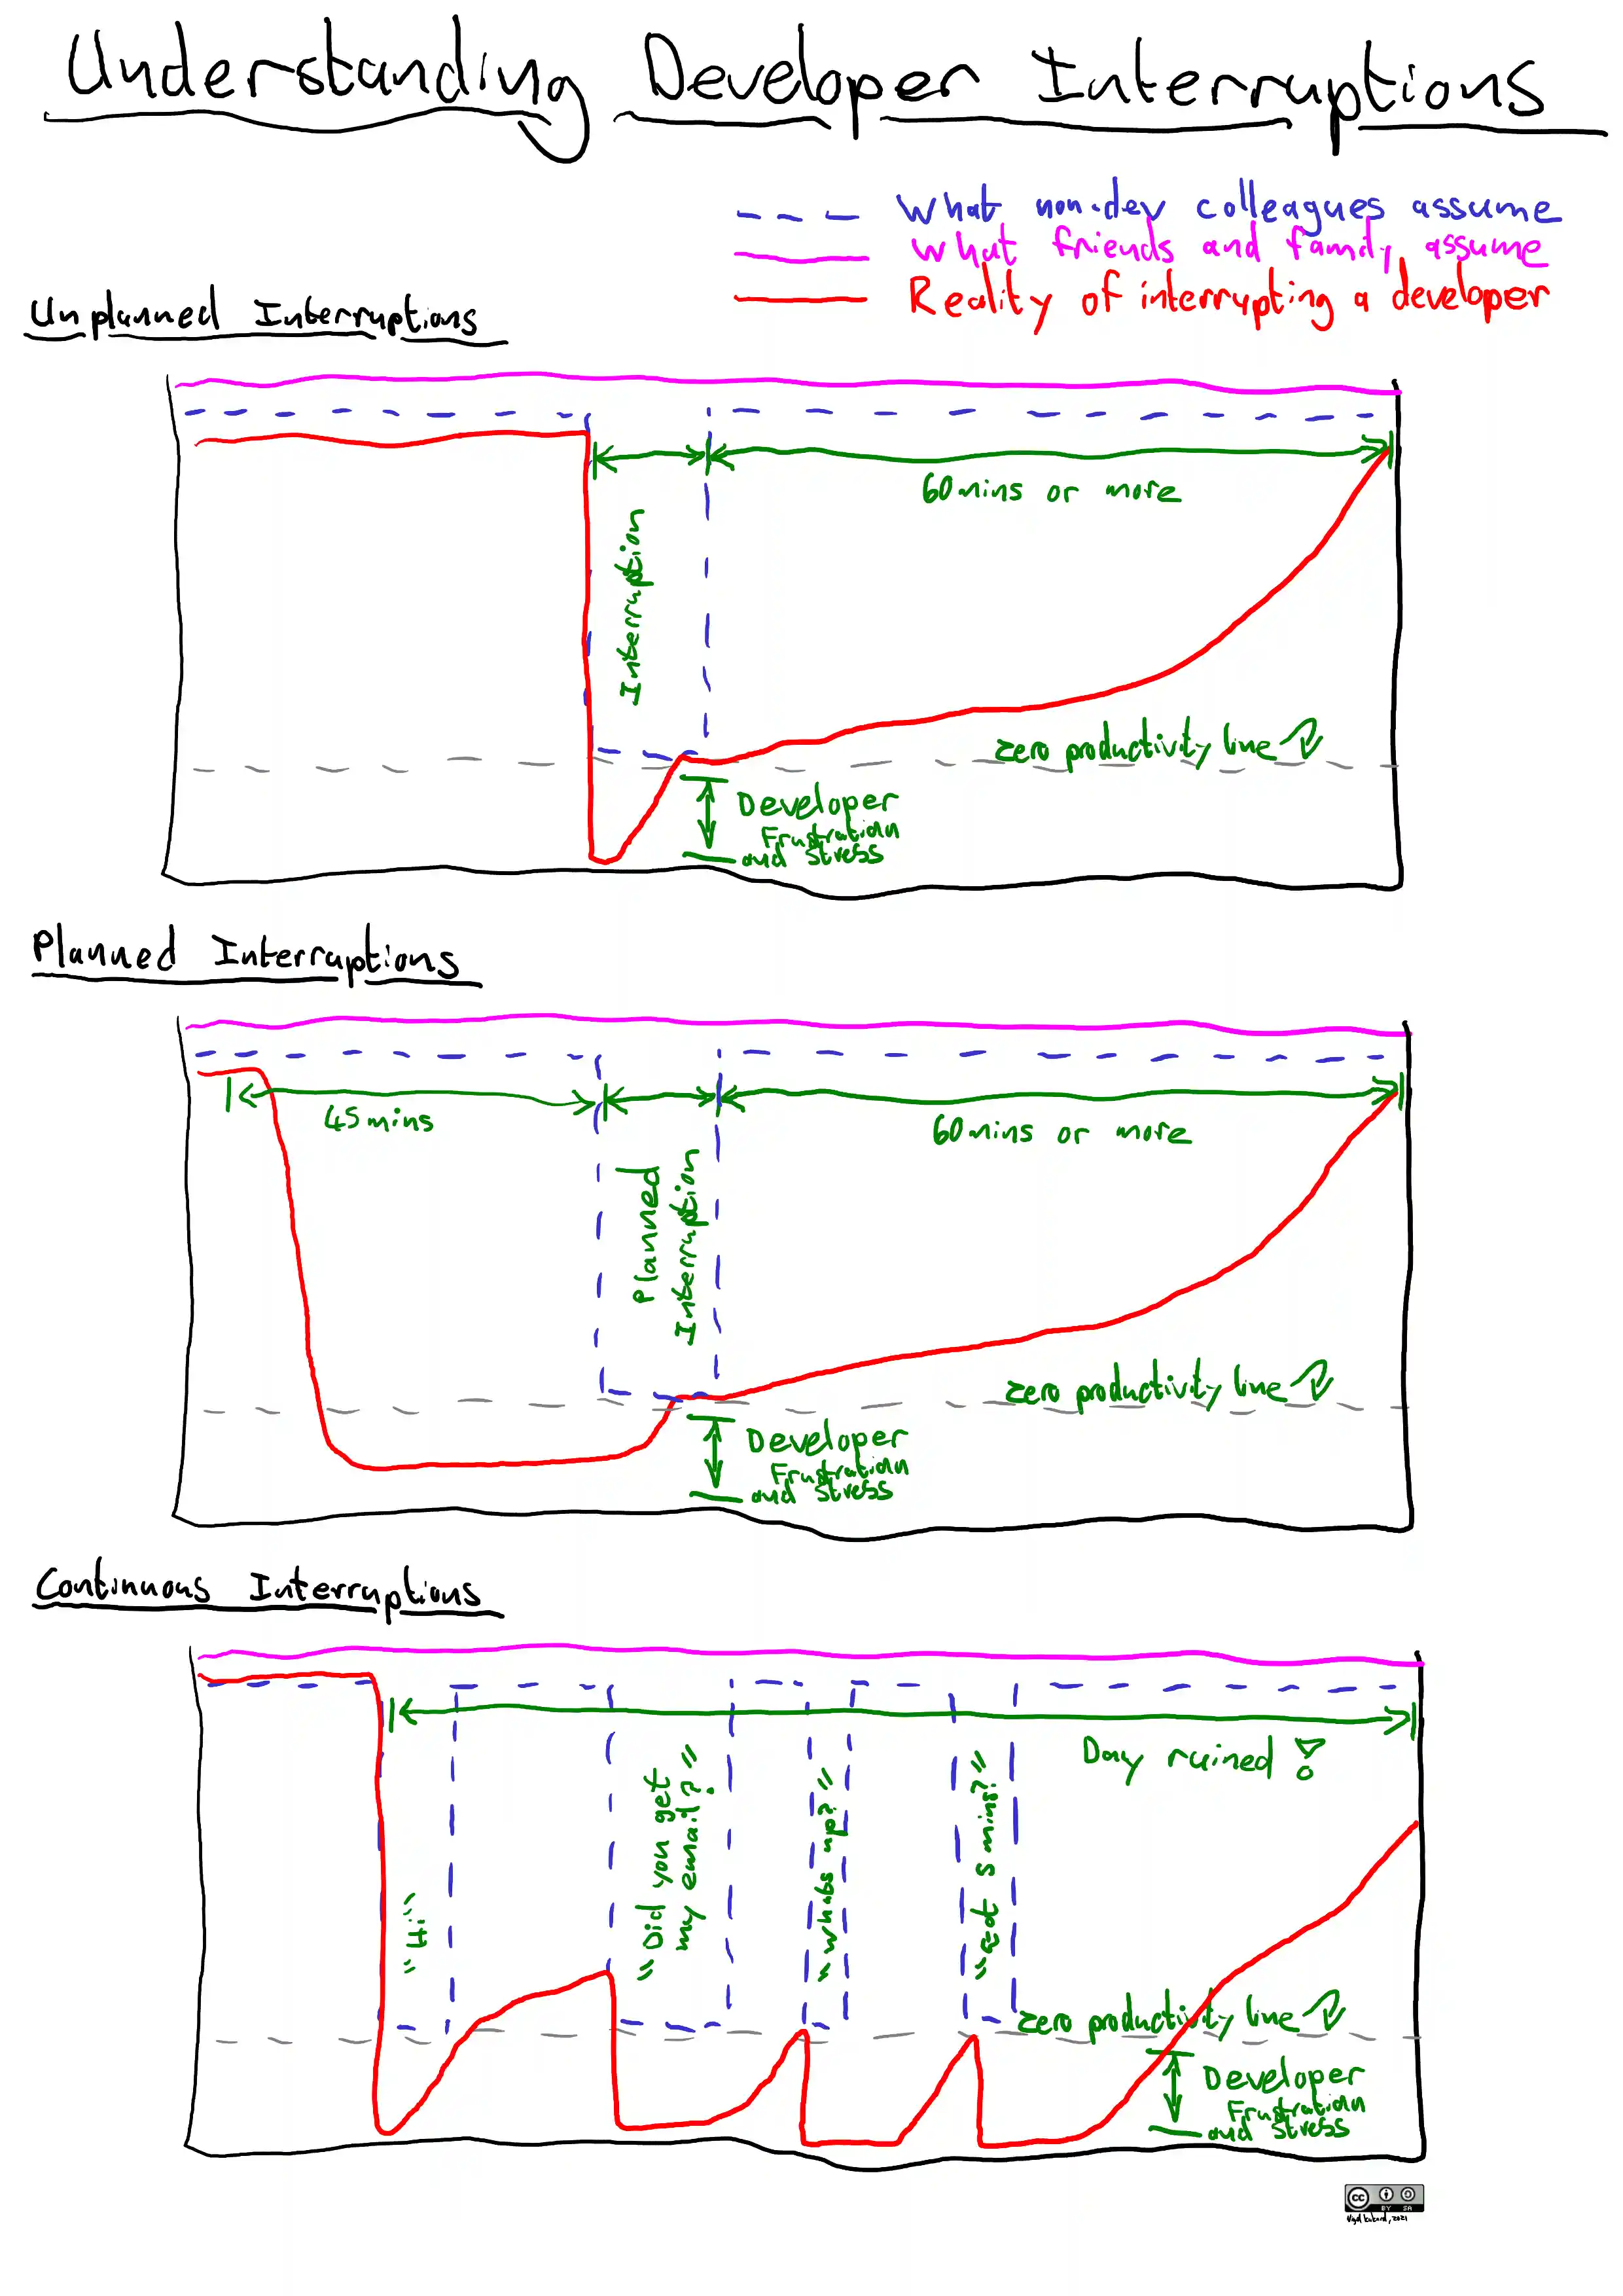 Understanding Developer Interruptions
What non-dev colleagues assume
What friends and family assume
Reality of interrupting a developer
Unplanned Interruptions
60mins or more
Interruption
zero productivity line
Developer
Frustration
and Stress
Planned Interruptions
45mins
60mins or more
Planned
Interruption
zero productivity line
Developer
Frustration
and Stress
Continuous Interruptions
Day ruined!
"Hi"
"Did you get
my email?"
"whats up?"
"got 5 mins?"
zero productivity line
Developer
Frustration
and Stress
cc
BY SA
2021